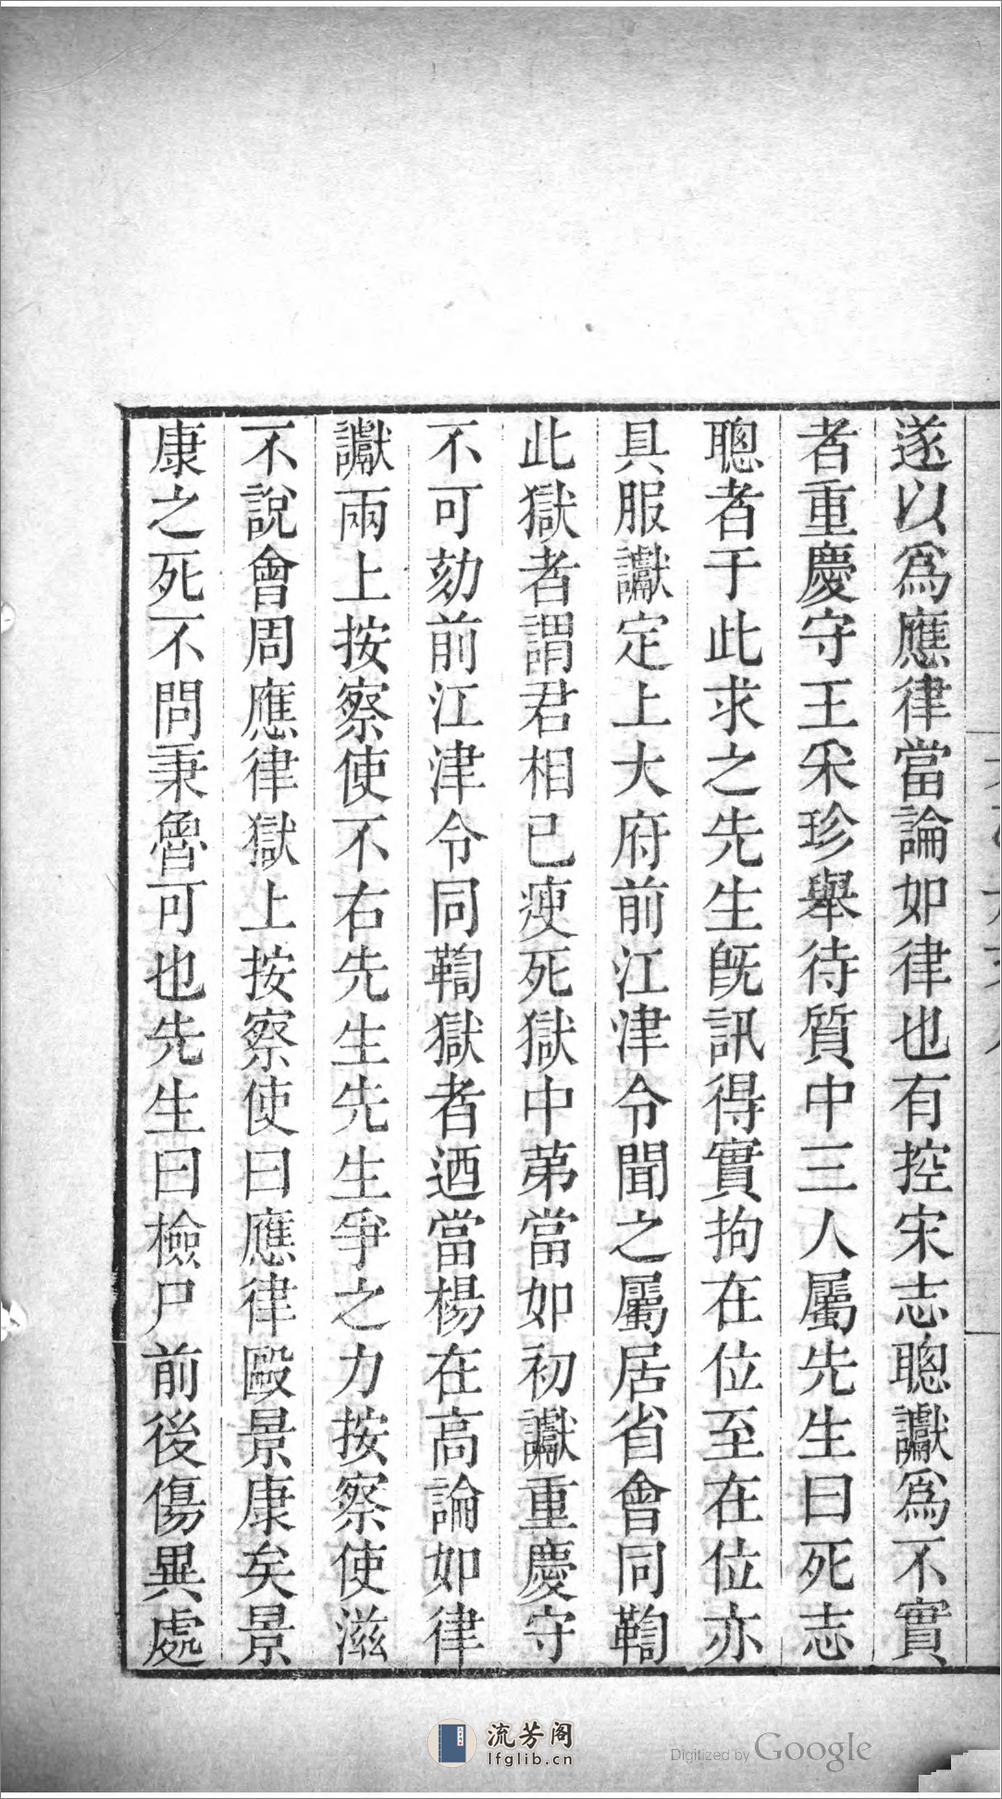 遂以爲應律當論如律也有控宋志聰讞爲不實
者重慶守王釆珍舉待質中三人屬先生曰死志
聰者于此求之先生旣訊得實拘在位至在位亦
具服讞定上大府前江津令聞之屬居省會同鞫
此獄者謂君相已瘐死獄中苐當如初讞重慶守
不可劾前江津令同鞫獄者迺當楊在高論如律
讞兩上按察使不右先生先生爭之力按察使滋
不說會周應律獄上按察使曰應律毆景康矣景
康之死不問秉魯可也先生曰檢尸前後傷異處
流芳阁
lfglib.cn
Digitized by Google